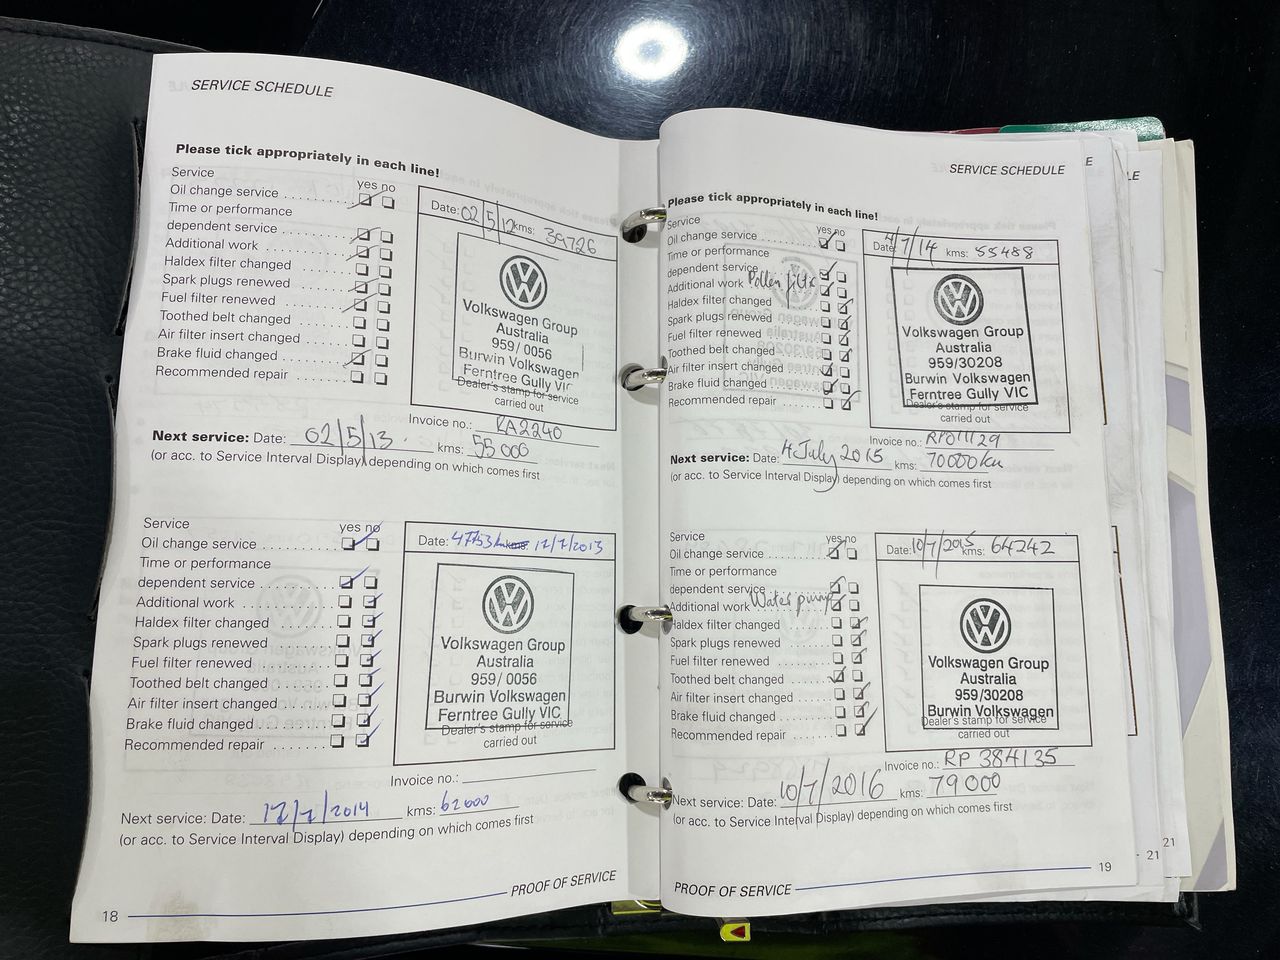 SERVICE SCHEDULE
Please tick appropriately in each line!
Service
yes no
Oil change service
Time or performance
dependent service
Additional work
Haldex filter changed
Spark plugs renewed
Fuel filter renewed
Toothed belt changed
Air filter insert changed
Brake fluid changed
Recommended repair
Date: 02/5/12 kms: 39726
Volkswagen Group
Australia
959/ 0056
Burwin Volkswagen
Ferntree Gully VIC
Dealer's stamp for service
carried out
Invoice no.: RA2240
Next service: Date: 02/5/13. kms: 55000
(or acc. to Service Interval Display) depending on which comes first
Service
yes no
Oil change service
Time or performance
dependent service
Additional work
Haldex filter changed
Spark plugs renewed
Fuel filter renewed
Toothed belt changed
Air filter insert changed
Brake fluid changed
Recommended repair
Date: 47753 kms: 17/7/2013
Volkswagen Group
Australia
959/ 0056
Burwin Volkswagen
Ferntree Gully VIC
Dealer's stamp for service
carried out
Invoice no.:
Next service: Date: 17/7/2014 kms: 62000
(or acc. to Service Interval Display) depending on which comes first
PROOF OF SERVICE
18
SERVICE SCHEDULE
Please tick appropriately in each line!
Service
yes no
Oil change service
Time or performance
dependent service
Additional work Pollen filter
Haldex filter changed
Spark plugs renewed
Fuel filter renewed
Toothed belt changed
Air filter insert changed
Brake fluid changed
Recommended repair
Date: 4/7/14 kms: 55488
Volkswagen Group
Australia
959/30208
Burwin Volkswagen
Ferntree Gully VIC
Dealer's stamp for service
carried out
Invoice no.:
Next service: Date: 4 July 2015 kms: 70000km
(or acc. to Service Interval Display) depending on which comes first
Service
yes no
Oil change service
Time or performance
dependent service
Additional work Water pump
Haldex filter changed
Spark plugs renewed
Fuel filter renewed
Toothed belt changed
Air filter insert changed
Brake fluid changed
Recommended repair
Date: 10/7/2015 kms: 64242
Volkswagen Group
Australia
959/30208
Burwin Volkswagen
Dealer's stamp for service
carried out
Invoice no.: RP 384135
Next service: Date: 10/7/2016 kms: 79000
(or acc. to Service Interval Display) depending on which comes first
19
PROOF OF SERVICE
21
21